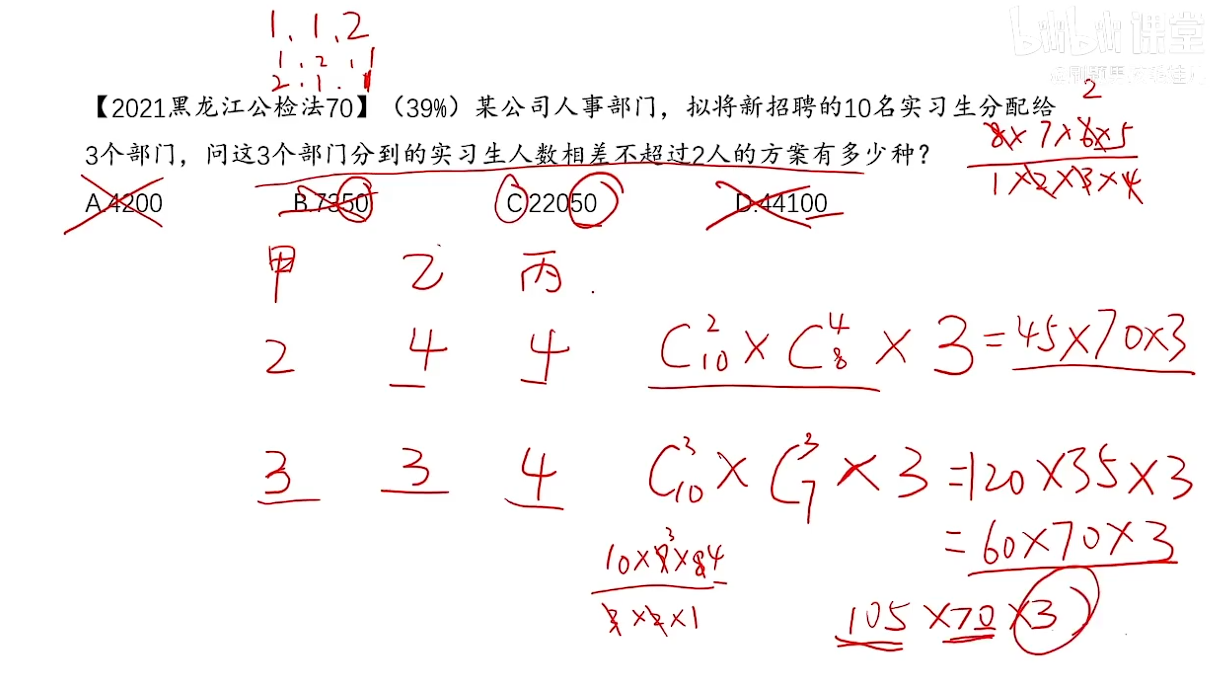 1、1、2
1.2.1
2.1.1
bilibili 课堂
【2021黑龙江公检法70】（39%）某公司人事部门，拟将新招聘的10名实习生分配给
3个部门，问这3个部门分到的实习生人数相差不超过2人的方案有多少种？
2
8×7×6×5
1×2×3×4
A.4200 B.7350 C.22050 D.44100
甲 乙 丙
2 4 4 C₁₀²×C₈⁴×3=45×70×3
3 3 4 C₁₀³×C₇³×3=120×35×3
=60×70×3
3
10×9×84
3×2×1
105×70×3